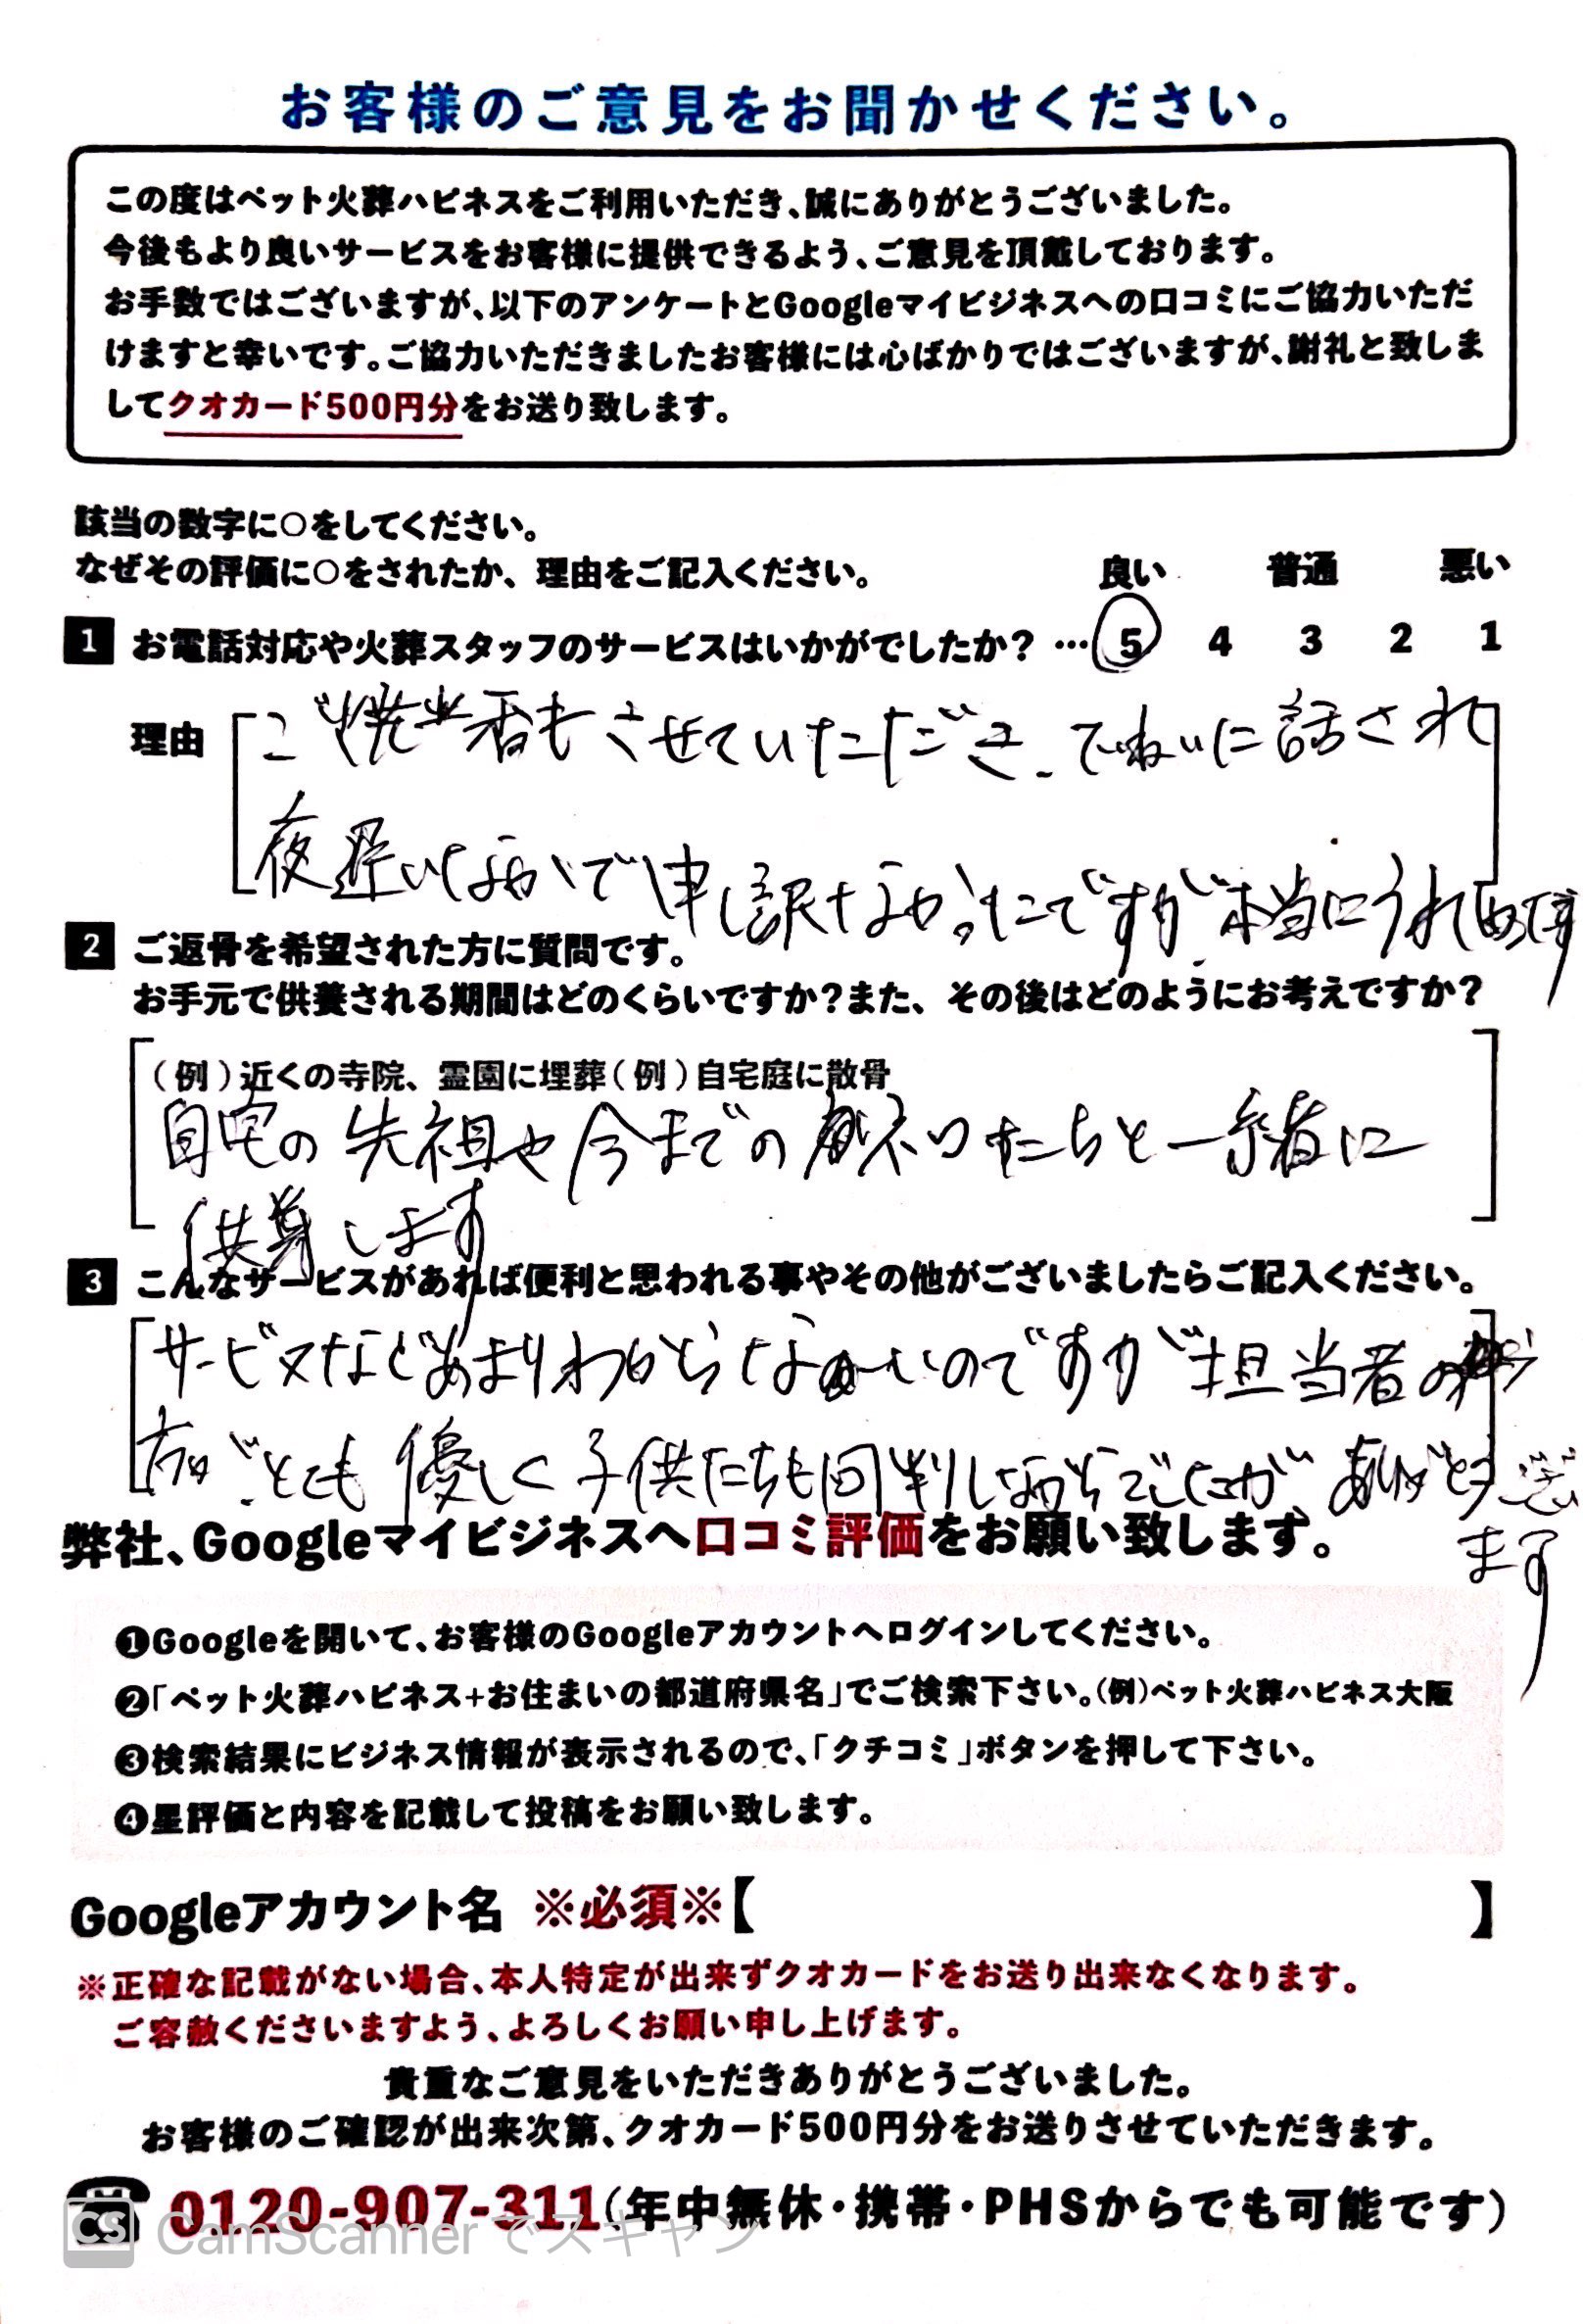 お客様のご意見をお聞かせください。
この度はペット火葬ハピネスをご利用いただき、誠にありがとうございました。
今後もより良いサービスをお客様に提供できるよう、ご意見を頂戴しております。
お手数ではございますが、以下のアンケートとGoogleマイビジネスへの口コミにご協力いただ
けますと幸いです。ご協力いただきましたお客様には心ばかりではございますが、謝礼と致しま
してクオカード500円分をお送り致します。
該当の数字に○をしてください。
なぜその評価に○をされたか、理由をご記入ください。 良い 普通 悪い
1 お電話対応や火葬スタッフのサービスはいかがでしたか？ … 5 4 3 2 1
理由 ご焼香もさせていただき、ていねいに話され
夜遅いなかで申し訳なかったですが本当にうれしい
2 ご返骨を希望された方に質問です。
お手元で供養される期間はどのくらいですか？また、その後はどのようにお考えですか？
（例）近くの寺院、霊園に埋葬（例）自宅庭に散骨
自宅の先祖や今までのネコたちと一緒に
供養します
3 こんなサービスがあれば便利と思われる事やその他がございましたらご記入ください。
サービスなどあまりわからないのですが担当者の
方がとても優しく子供たちも
ありがとうござい
ます
弊社、Googleマイビジネスへ口コミ評価をお願い致します。
❶Googleを開いて、お客様のGoogleアカウントへログインしてください。
❷「ペット火葬ハピネス+お住まいの都道府県名」でご検索下さい。（例）ペット火葬ハピネス大阪
❸検索結果にビジネス情報が表示されるので、「クチコミ」ボタンを押して下さい。
❹星評価と内容を記載して投稿をお願い致します。
Googleアカウント名 ※必須※【 】
※正確な記載がない場合、本人特定が出来ずクオカードをお送り出来なくなります。
ご容赦くださいますよう、よろしくお願い申し上げます。
貴重なご意見をいただきありがとうございました。
お客様のご確認が出来次第、クオカード500円分をお送りさせていただきます。
☎0120-907-311（年中無休・携帯・PHSからでも可能です）
CS CamScanner でスキャン